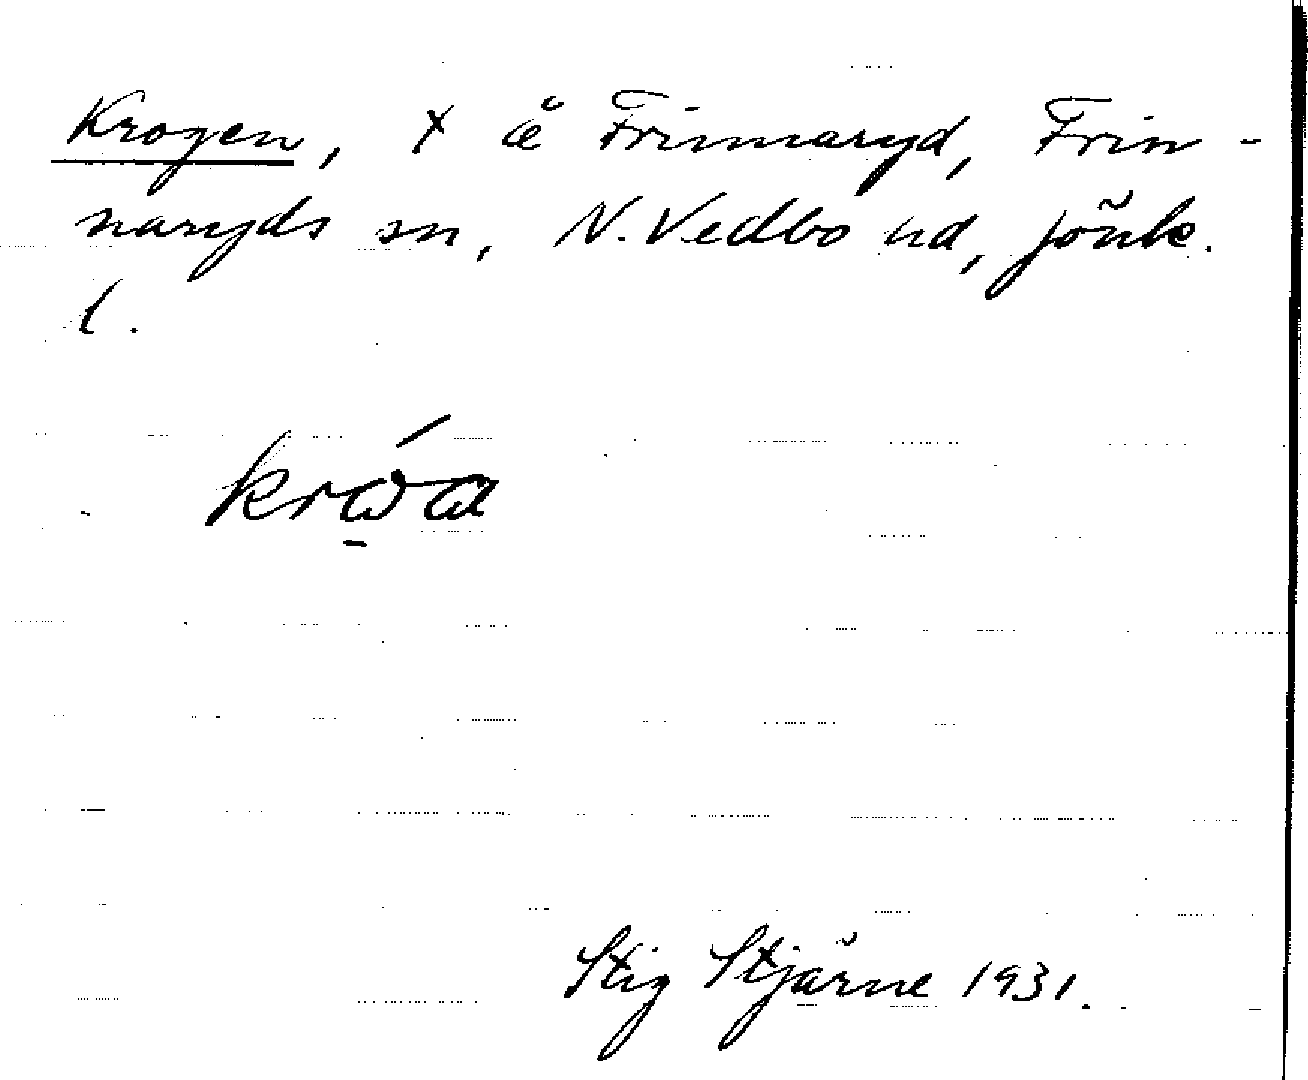 Krogen, x å Frinnaryd, Frin-
naryds sn, N. Vedbo hd, Jönk.
l.
krώ̱a
Stig Stjärne 1931.